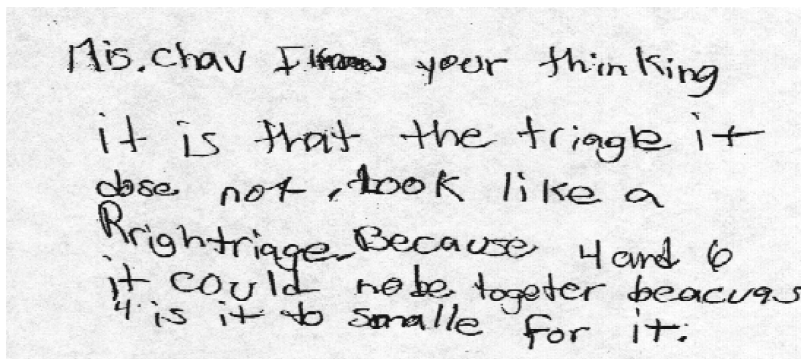 Mis. chav I know your thinking
it is that the triagle it
dose not, look like a
Rrightriage. Because 4 and 6
it could no be togeter beacuas
4 is it to smalle for it.